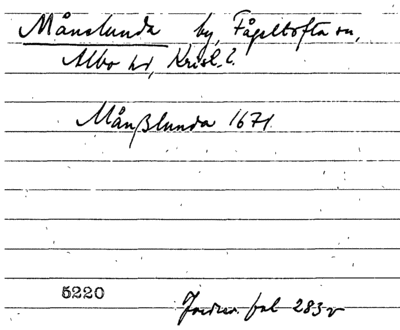 Månslunda by, Fågeltofta sn,
Albo hd, Krist. l.
Månßlunda 1671
5220
Jordrev. fol 283 v